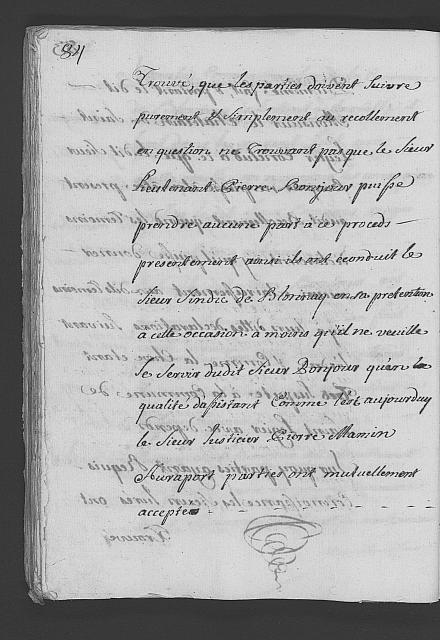 84
Trouvé, que les parties doivent suivre
purement & simplement au recollement
en question ne Trouvant pas que le Sieur
Lieutenant Pierre Bonjour puisse
prendre aucune part à ce proceds
presentement ainsi ils ont éconduit le
Sieur Sindic de Blonay en sa pretention
a cette occasion à moins qu'il ne veuille
se servir dudit Sieur Bonjour qu'en la
qualité d'assistant Comme l'est aujourduy
le Sieur Justicier Pierre Mamin
parties ont mutuellement
accepté